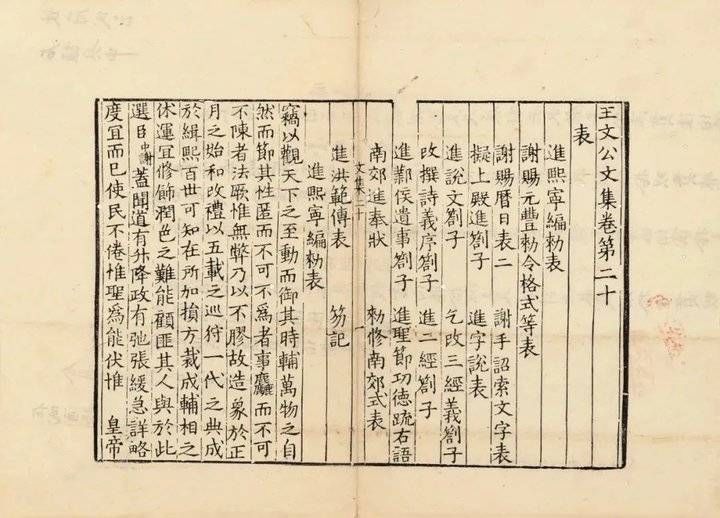 王文公文集卷第二十
表
進熙寧編勑表
謝賜元豐勑令格式等表
謝賜曆日表二　謝手詔索文字表
擬上殿進劄子　進字說表
進說文劄子　乞改三經義劄子
改撰詩義序劄子　進二經劄子
進鄴侯遺事劄子　進聖節功德疏右語
南郊進奉狀　勑修南郊式表
文集二十　一
進洪範傳表　笏記
進熙寧編勑表
竊以觀天下之至動而御其時輔萬物之自
然而節其性匿而不可不爲者事麤而不可
不陳者法歌惟無弊乃以不膠故造象於正
月之始和改禮以五載之巡狩一代之典成
於緝熙百世可知在所加損方裁成輔相之
休運宜修飾潤色之難能顧匪其人與於此
選臣中謝蓋聞道有升降政有弛張緩急詳略
度宜而已使民不倦惟聖爲能伏惟　皇帝